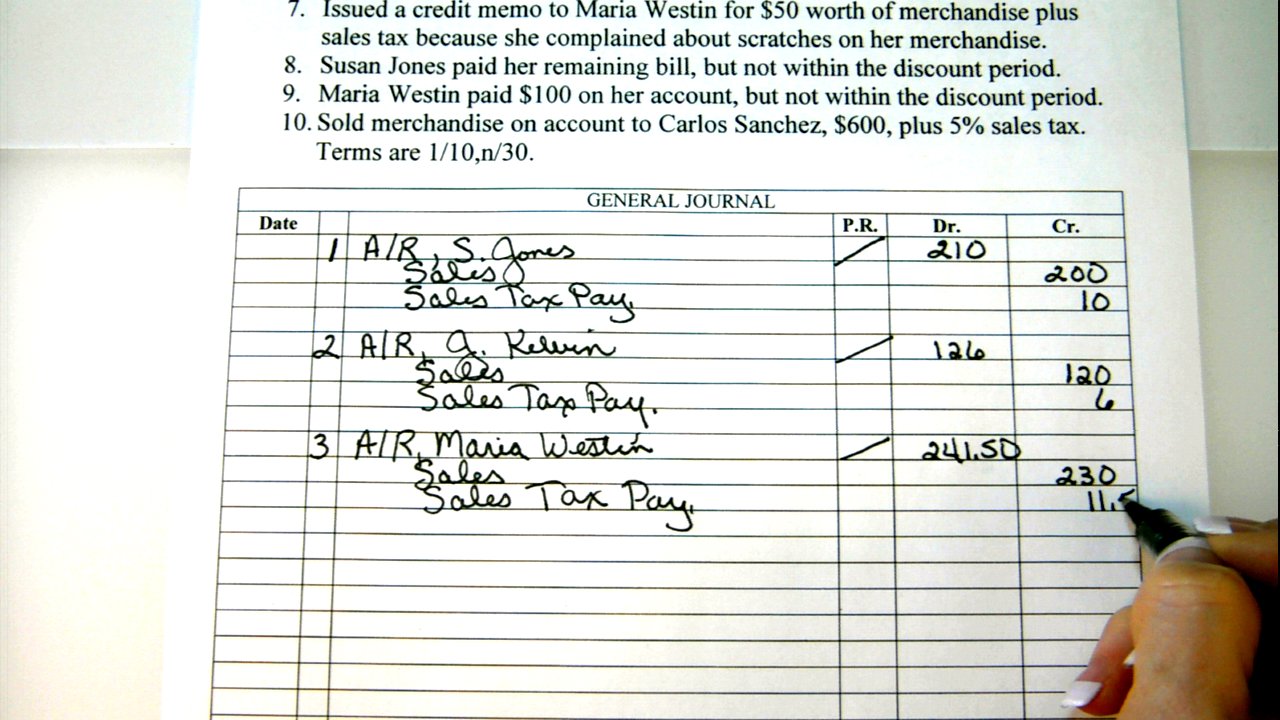 7. Issued a credit memo to Maria Westin for $50 worth of merchandise plus
sales tax because she complained about scratches on her merchandise.
8. Susan Jones paid her remaining bill, but not within the discount period.
9. Maria Westin paid $100 on her account, but not within the discount period.
10. Sold merchandise on account to Carlos Sanchez, $600, plus 5% sales tax.
Terms are 1/10,n/30.
GENERAL JOURNAL
Date P.R. Dr. Cr.
1 A/R, S. Jones 210
Sales 200
Sales Tax Pay. 10
2 A/R, G. Kelvin 126
Sales 120
Sales Tax Pay. 6
3 A/R, Maria Westin 241.50
Sales 230
Sales Tax Pay. 11.5